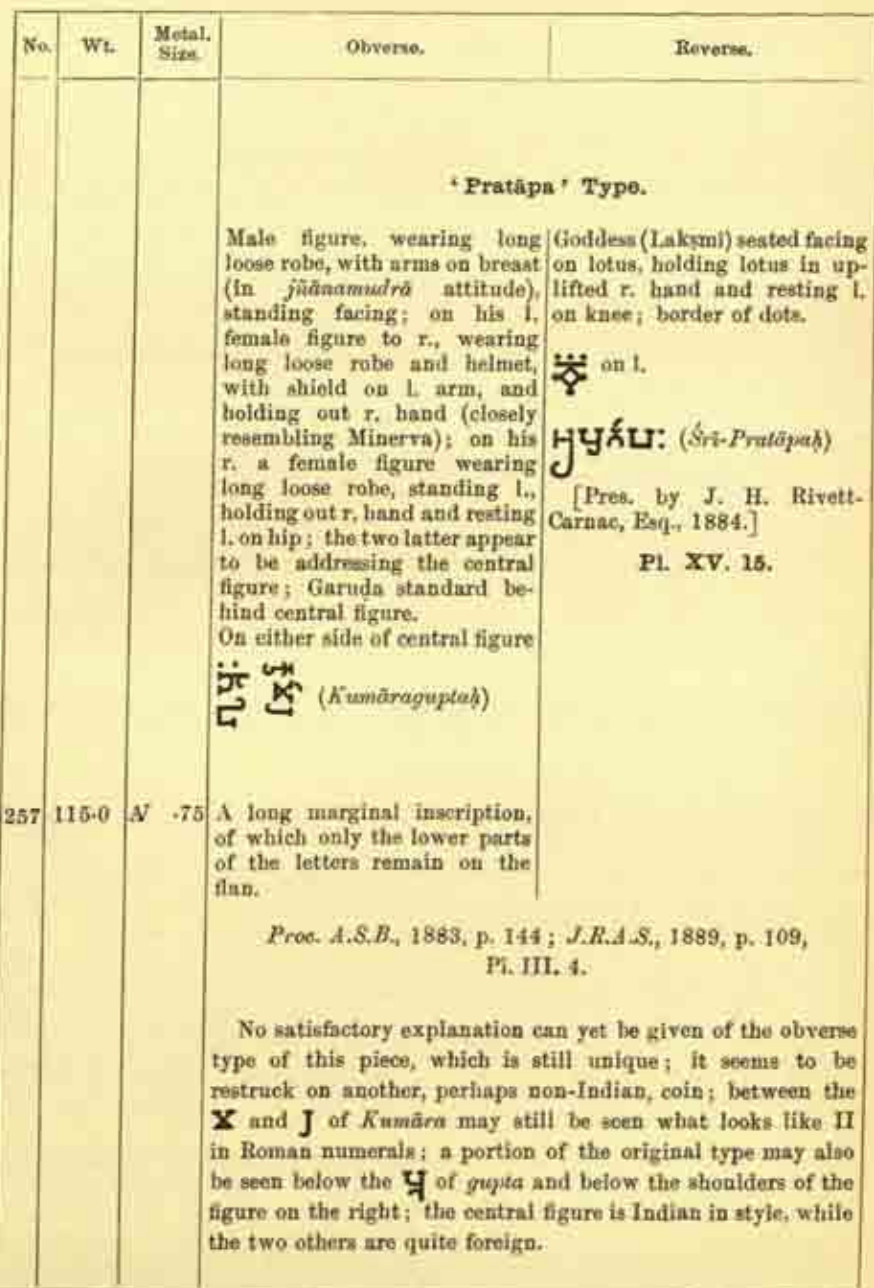 No. Wt. Metal. Size. Obverse. Reverse.
‘Pratāpa’ Type.
Male figure, wearing long
loose robe, with arms on breast
(in jñānamudrā attitude),
standing facing; on his l.
female figure to r., wearing
long loose robe and helmet,
with shield on l. arm, and
holding out r. hand (closely
resembling Minerva); on his
r. a female figure wearing
long loose robe, standing l.,
holding out r. hand and resting
l. on hip; the two latter appear
to be addressing the central
figure; Garuḍa standard be-
hind central figure.
On either side of central figure
(Kumāraguptaḥ)
Goddess (Lakṣmī) seated facing
on lotus, holding lotus in up-
lifted r. hand and resting l.
on knee; border of dots.
on l.
(Śrī-Pratāpaḥ)
[Pres. by J. H. Rivett-
Carnac, Esq., 1884.]
Pl. XV. 15.
257 115·0 N ·75 A long marginal inscription,
of which only the lower parts
of the letters remain on the
flan.
Proc. A.S.B., 1883, p. 144; J.R.A.S., 1889, p. 109,
Pl. III. 4.
No satisfactory explanation can yet be given of the obverse
type of this piece, which is still unique; it seems to be
restruck on another, perhaps non-Indian, coin; between the
and of Kumāra may still be seen what looks like II
in Roman numerals; a portion of the original type may also
be seen below the of gupta and below the shoulders of the
figure on the right; the central figure is Indian in style, while
the two others are quite foreign.